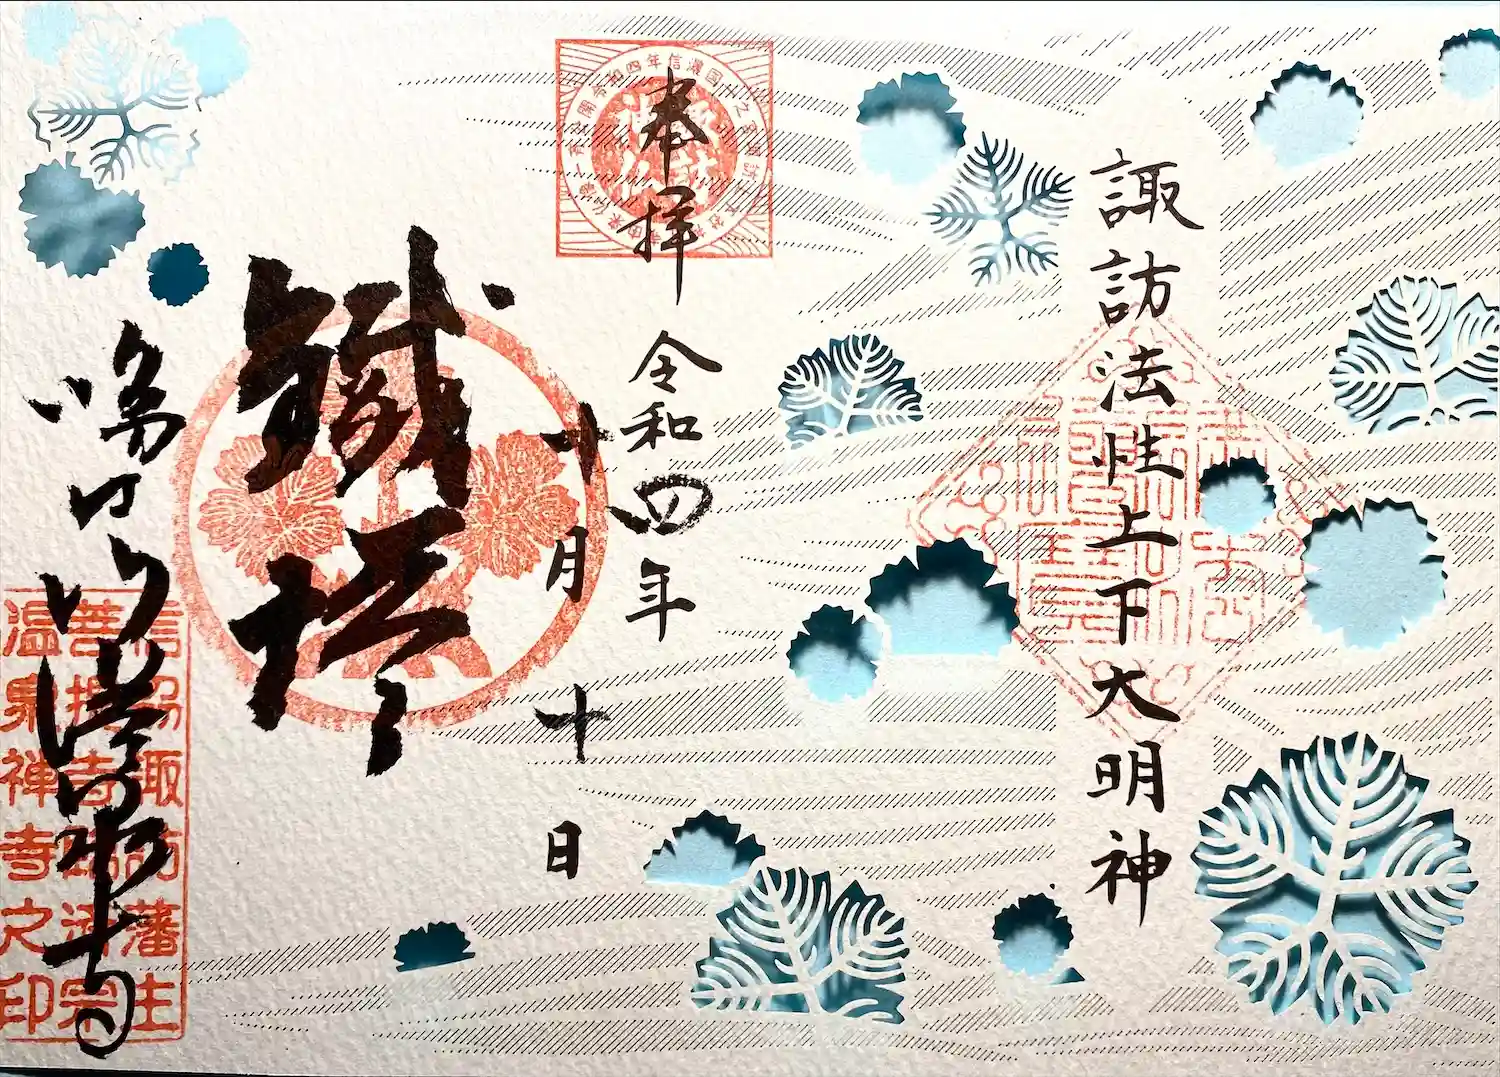 諏訪法性上下大明神
奉拝 令和四年
十月十日
鐵塔
温泉寺
諏訪藩主
菩提寺臨済宗
温泉禅寺之印
令和四年信濃国一之宮諏訪